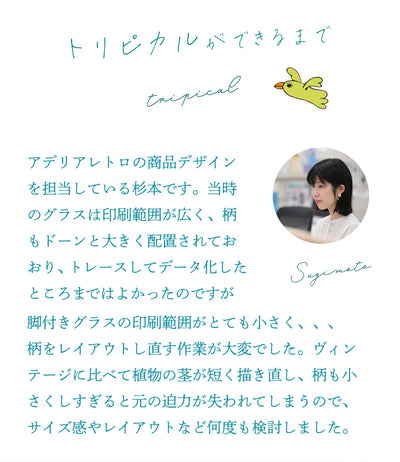 トリピカルができるまで
tripical
アデリアレトロの商品デザイン
を担当している杉本です。当時
のグラスは印刷範囲が広く、柄
もドーンと大きく配置されてお
おり、トレースしてデータ化した
ところまではよかったのですが
Sugimoto
脚付きグラスの印刷範囲がとても小さく、、、
柄をレイアウトし直す作業が大変でした。ヴィン
テージに比べて植物の茎が短く描き直し、柄も小
さくしすぎると元の迫力が失われてしまうので、
サイズ感やレイアウトなど何度も検討しました。